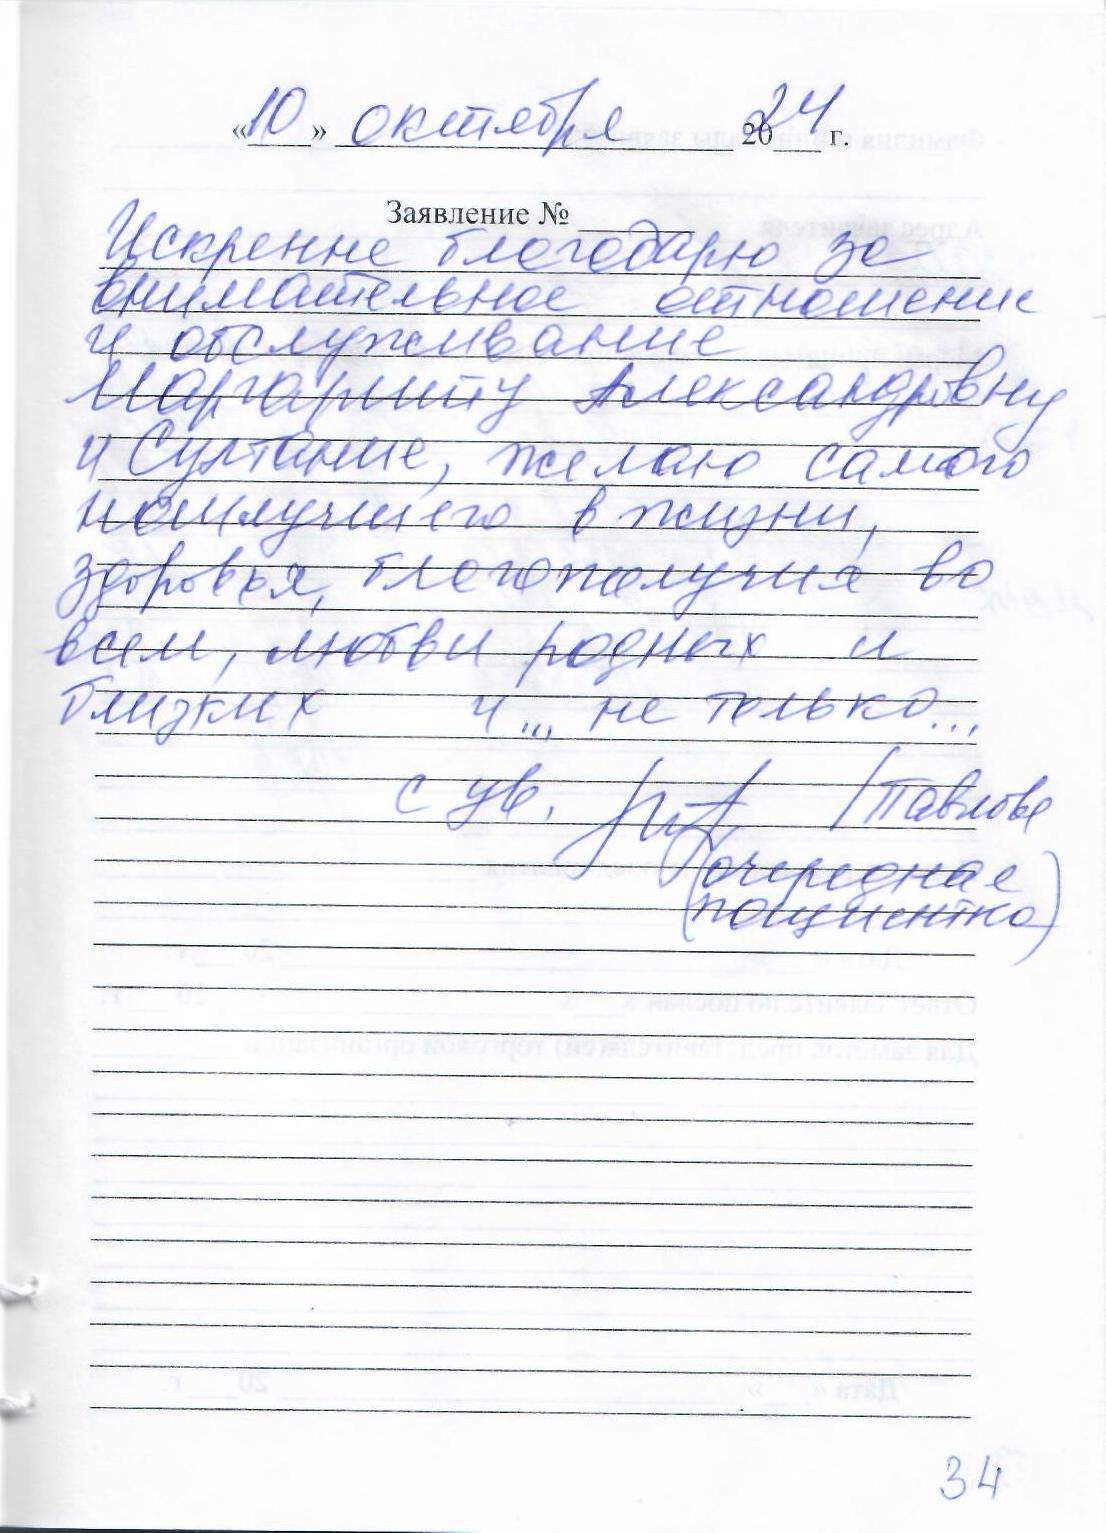 «10» октября 2024 г.
Заявление №
Искренне благодарю за
внимательное отношение
и обслуживание
Маргариту Александровну
и Султание, желаю самого
наилучшего в жизни,
здоровья, благополучия во
всем, любви родных и
близких и... не только...
с ув. /Павлова
(очередная
пациентка)
34